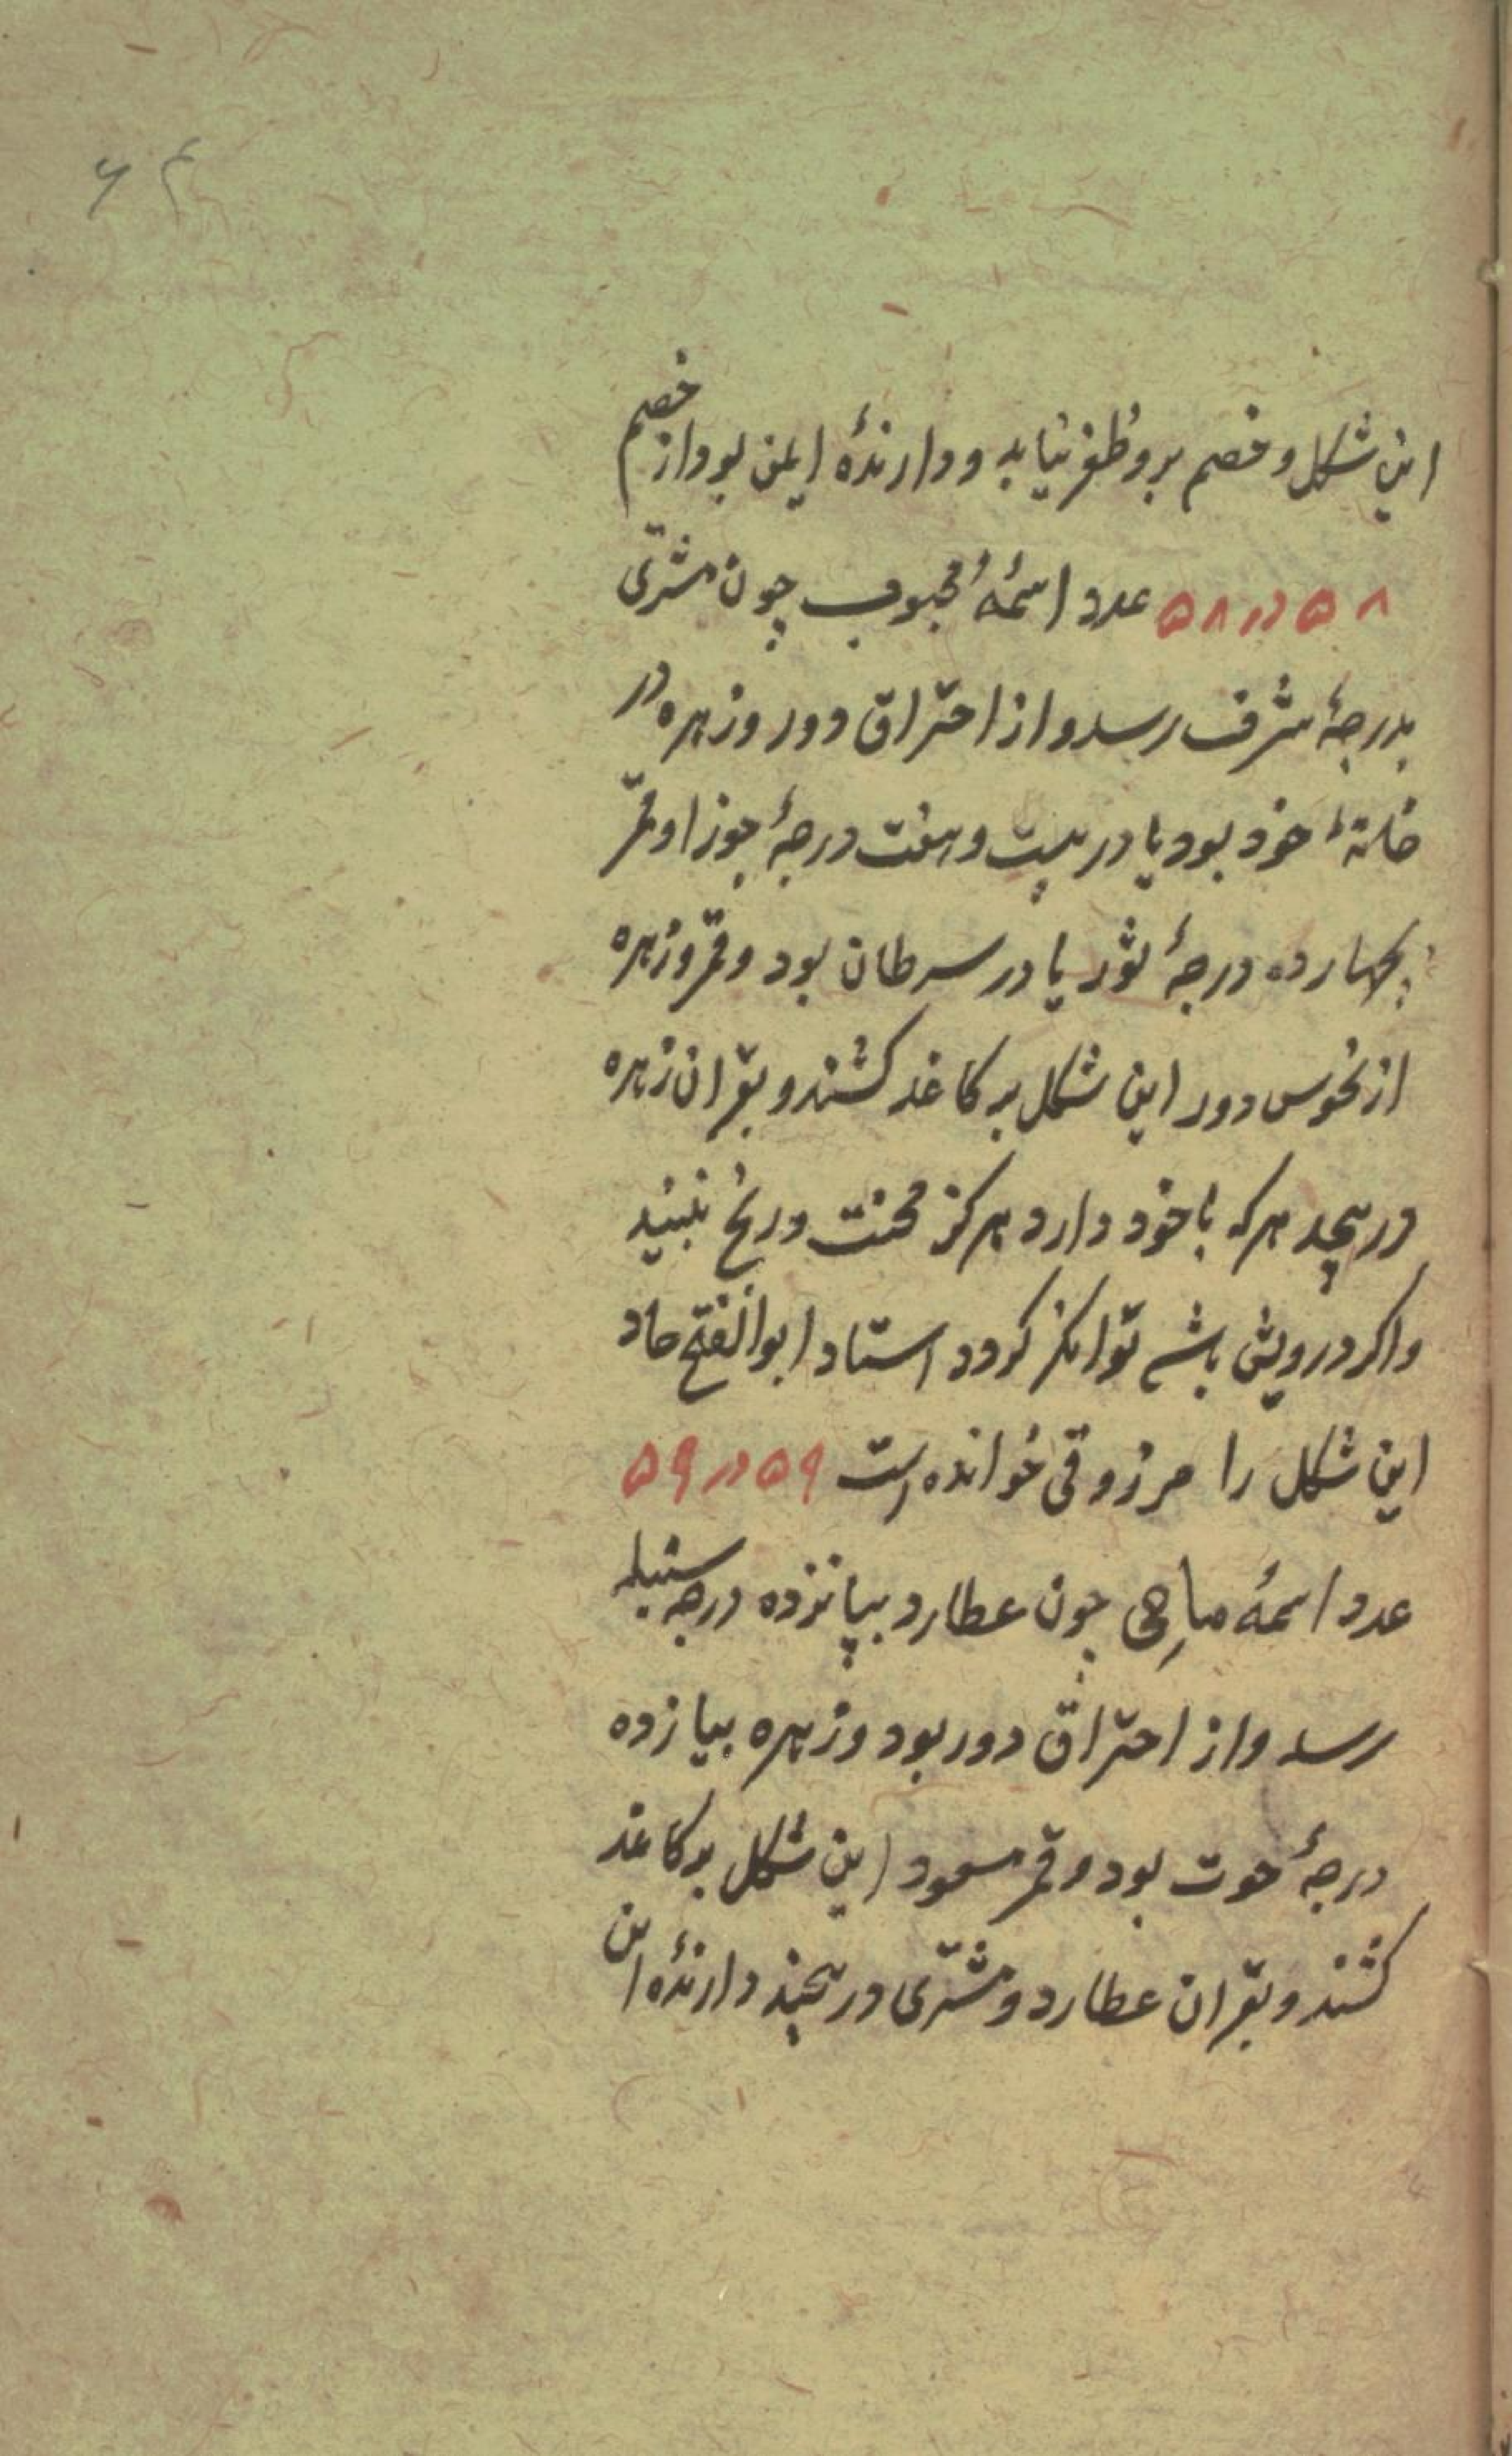 ۶۴
این شکل و خصم برو ظفر نیابد و دارندهٔ ایمن بود از خصم
۵۸ در ۵۸ عدد اسمهٔ محبوب چون مشتری
بدرجهٔ شرف رسد و از احتراق دور و زهره در
خانهٔ خود بود یا در بیست و هفت درجهٔ جوزا و قمر
بچهارده درجهٔ ثور یا در سرطان بود و قمر و زهره
از نحوس دور این شکل بر کاغذ کشند و بقران زهره
در پیچد هرکه با خود دارد هرکز محنت و رنج نبیند
واکر درویش باشد توانکر کردد استاد ابوالفتح حاد
این شکل را مرزوقی خوانده است ۵۹ در ۵۹
عدد اسمهٔ چون عطارد بپانزده درجه سنبله
رسد و از احتراق دور بود و زهره بیازده
درجهٔ حوت بود و قمر مسعود این شکل بر کاغذ
کشند و بقران عطارد و مشتری در پیچند دارندهٔ این